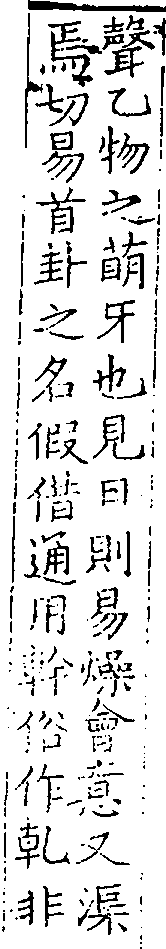 聲乙物之萌牙也見日則易燥會意又渠
焉切易首卦之名假借通用幹俗作乹非